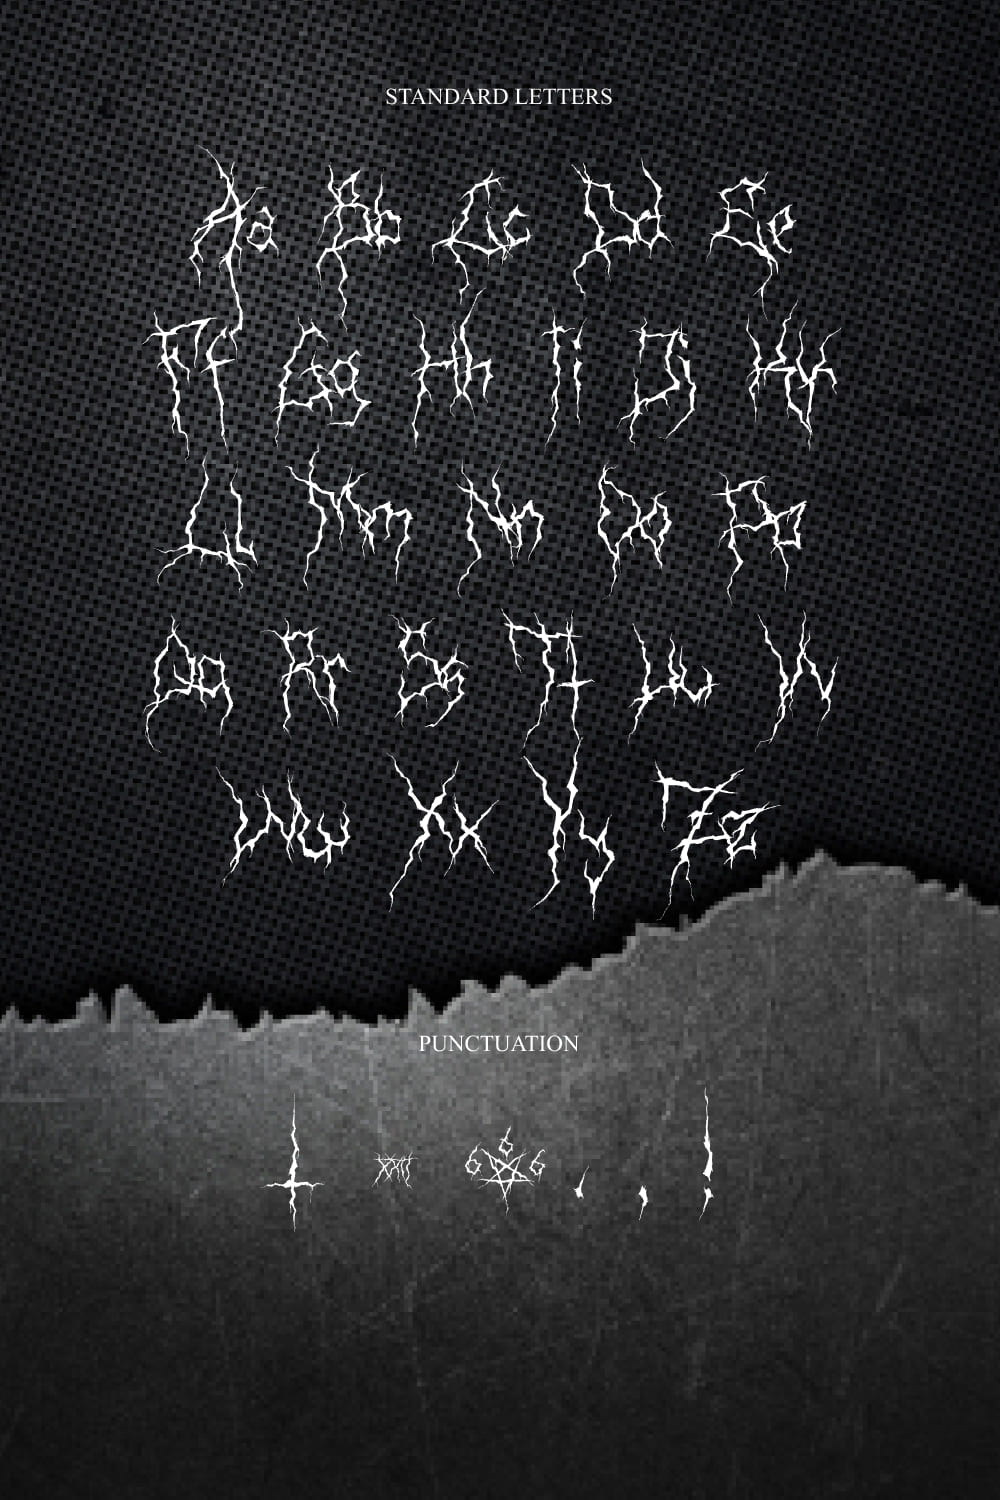 STANDARD LETTERS
Aa Bb Cc Dd Ee
Ff Gg Hh Ii Jj Kk
Ll Mm Nn Oo Pp
Qq Rr Ss Tt Uu Vv
Ww Xx Yy Zz
PUNCTUATION
666 . , !